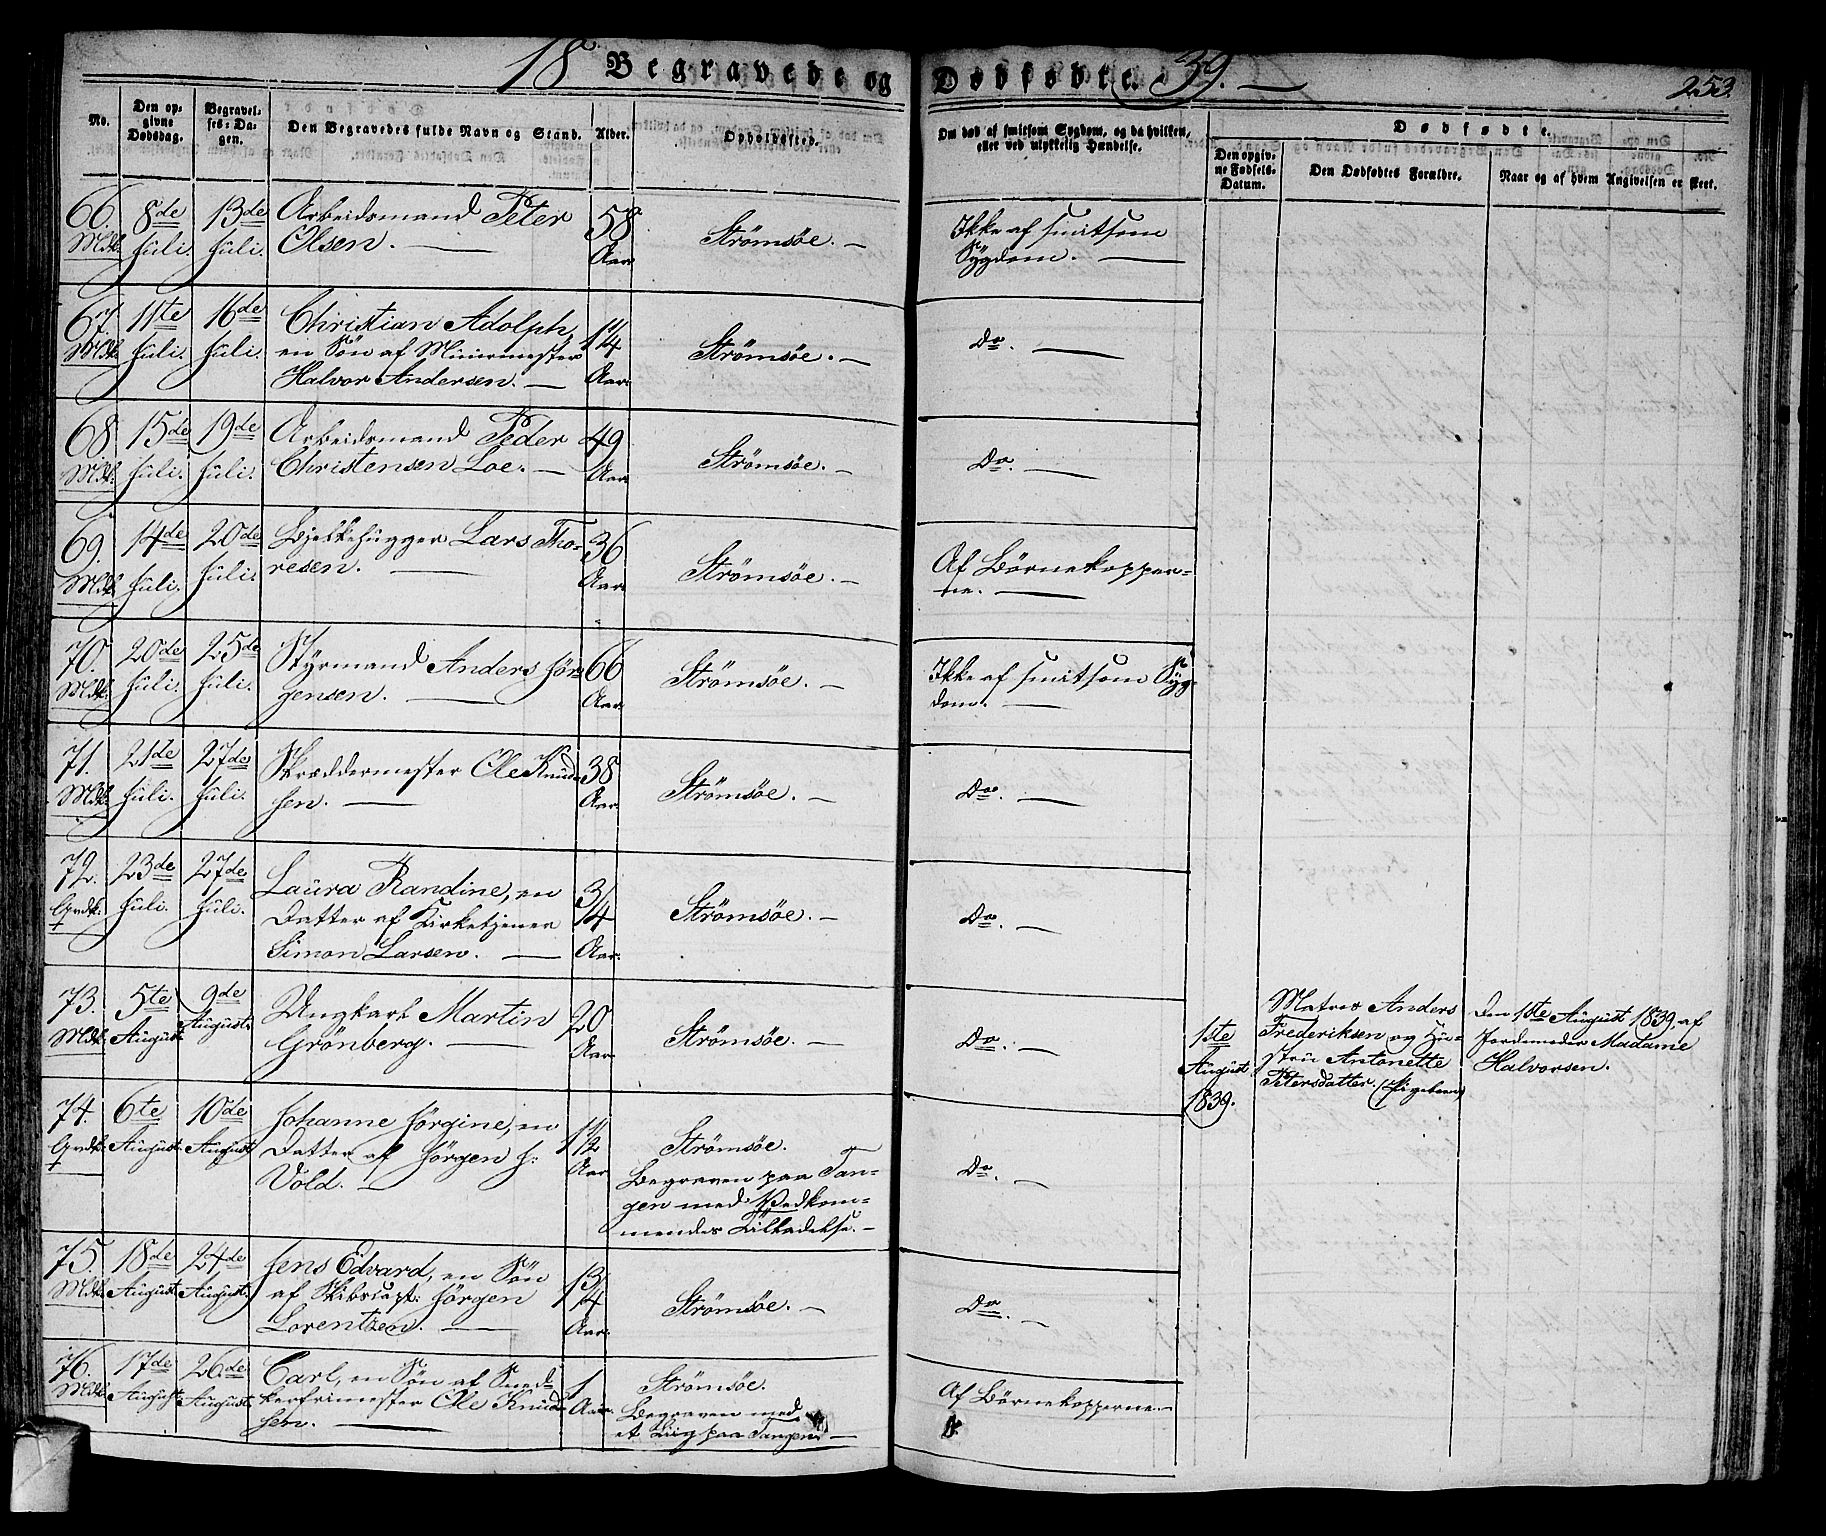 18 Begravede og Dødfødte. 39. 253.
No.
Den opgivne Dødsdag.
Begravelses-Dagen.
Den Begravedes fulde Navn og Stand.
Alder.
Opholdssted.
Om død af smitsom Sygdom, og da hvilken, eller ved ulykkelig Hændelse.
Dødfødte.
Den opgivne Fødsels-Datum.
Den Dødfødtes Forældre.
Naar og af hvem Angivelsen er skeet.
66. 8de 13de Arbeidsmand Peter 58 Strømsøe. Ikke af smitsom
Mdk. Juli. Juli. Olsen. Aar Sygdom.
67. 11te 16de Christian Adolph, 1 1/4 Strømsøe. Do.
Mdk. Juli. Juli. en Søn af Muurmester
Halvor Andersen. Aar.
68. 15de 19de Arbeidsmand Peder 49 Strømsøe. Do.
Mdk. Juli. Juli. Christensen Loe. Aar
69. 14de 20de Bjelkehugger Lars Tho- 36 Strømsøe. Af Børnekopper-
Mdk. Juli. Juli. resen. Aar. ne.
70. 20de 25de Styrmand Anders Jør- 66 Strømsøe. Ikke af smitsom Syg-
Mdk. Juli. Juli. gensen. Aar. dom.
71. 21de 27de Skræddermester Ole Knud- 38 Strømsøe. Do.
Mdk. Juli. Juli. sen. Aar.
72. 23de 27de Laura Randine, en 3/4 Strømsøe. Do.
Qvdk. Juli. Juli. Datter af Kirketjener
Simon Larsen. Aar.
73. 5te 9de Ungkarl Martin 20 Strømsøe. Do.
Mdk. August. August. Grönberg. Aar.
1ste August 1839.
Matros Anders
Frederiksen og Hu-
stru Antonette
Petersdatter. (Pigebarn)
Den 1ste August 1839, af
Jordemoder Madame
Halvorsen.
74. 6te 10de Johanne Jørgine, en 1 1/2 Strømsøe. Do.
Qvdk. August. August Datter af Jørgen J: Aar Begraven paa Tan-
Vold. gen med Vedkom-
mendes Tilladelse.
75. 18de 24de Jens Edvard, en Søn 1 3/4 Strømsøe. Do.
Mdk. August. August. af Skibscapt: Jørgen
Lorentzen. Aar.
76. 17de 26de Carl, en Søn af Sned- 1 Strømsøe. Af Børnekopperne.
Mdk. August. August. kerfrimester Ole Knud- Aar. Begraven med
sen. et Liig paa Tangen